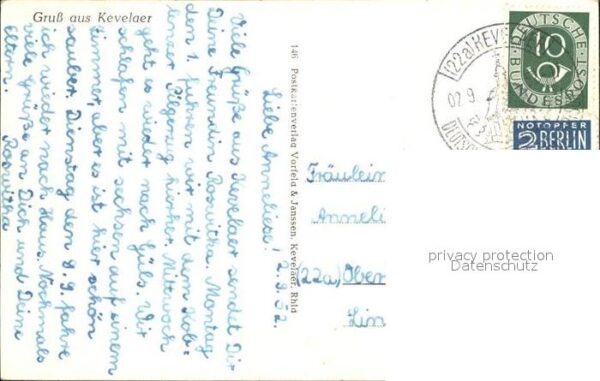 Gruß aus Kevelaer
Liebe Anneliese! 2.9.52.
Viele Grüße aus Kevelaer sendet Dir
Deine Freundin Roswitha. Montag
dem 1. fuhren wir mit dem Kob-
lenzer Pilgerzug hierher. Mittwoch
geht es wieder nach Güls. Wir
schlafen mit sechsen auf einem
Zimmer, aber es ist hier schön
sauber. Dienstag dem 8.9. fahre
ich wieder nach Haus. Nochmals
viele Grüße an Dich und Deine
Eltern! Roswitha
146 Postkartenverlag Vorfeld & Janssen, Kevelaer, Rhld
Fräulein
Anneli
(22a) Ober
Lin
(22a) KEVE
02.9
DEUTSCHE
BUNDESPOST
10
NOTOPFER
2 BERLIN
privacy protection
Datenschutz